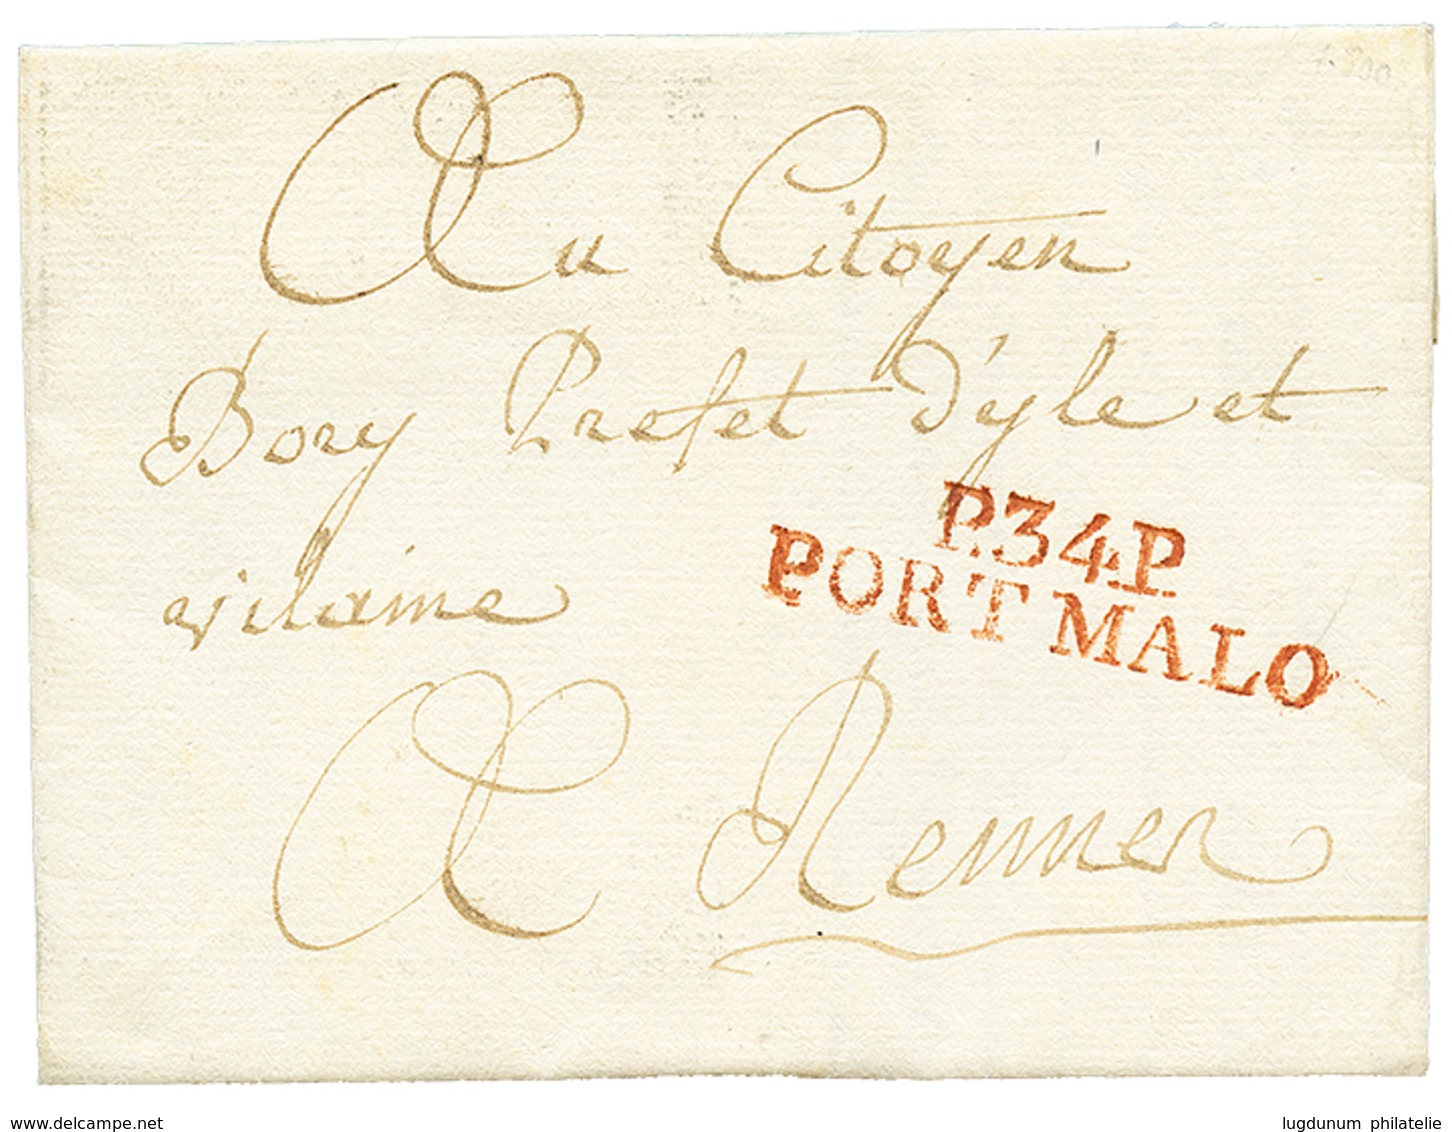 Au Citoyen
Bory Prefet D'yle et
vilaine
P.34.P.
PORT MALO
A Rennes
www.delcampe.net
lugdunum philatelie